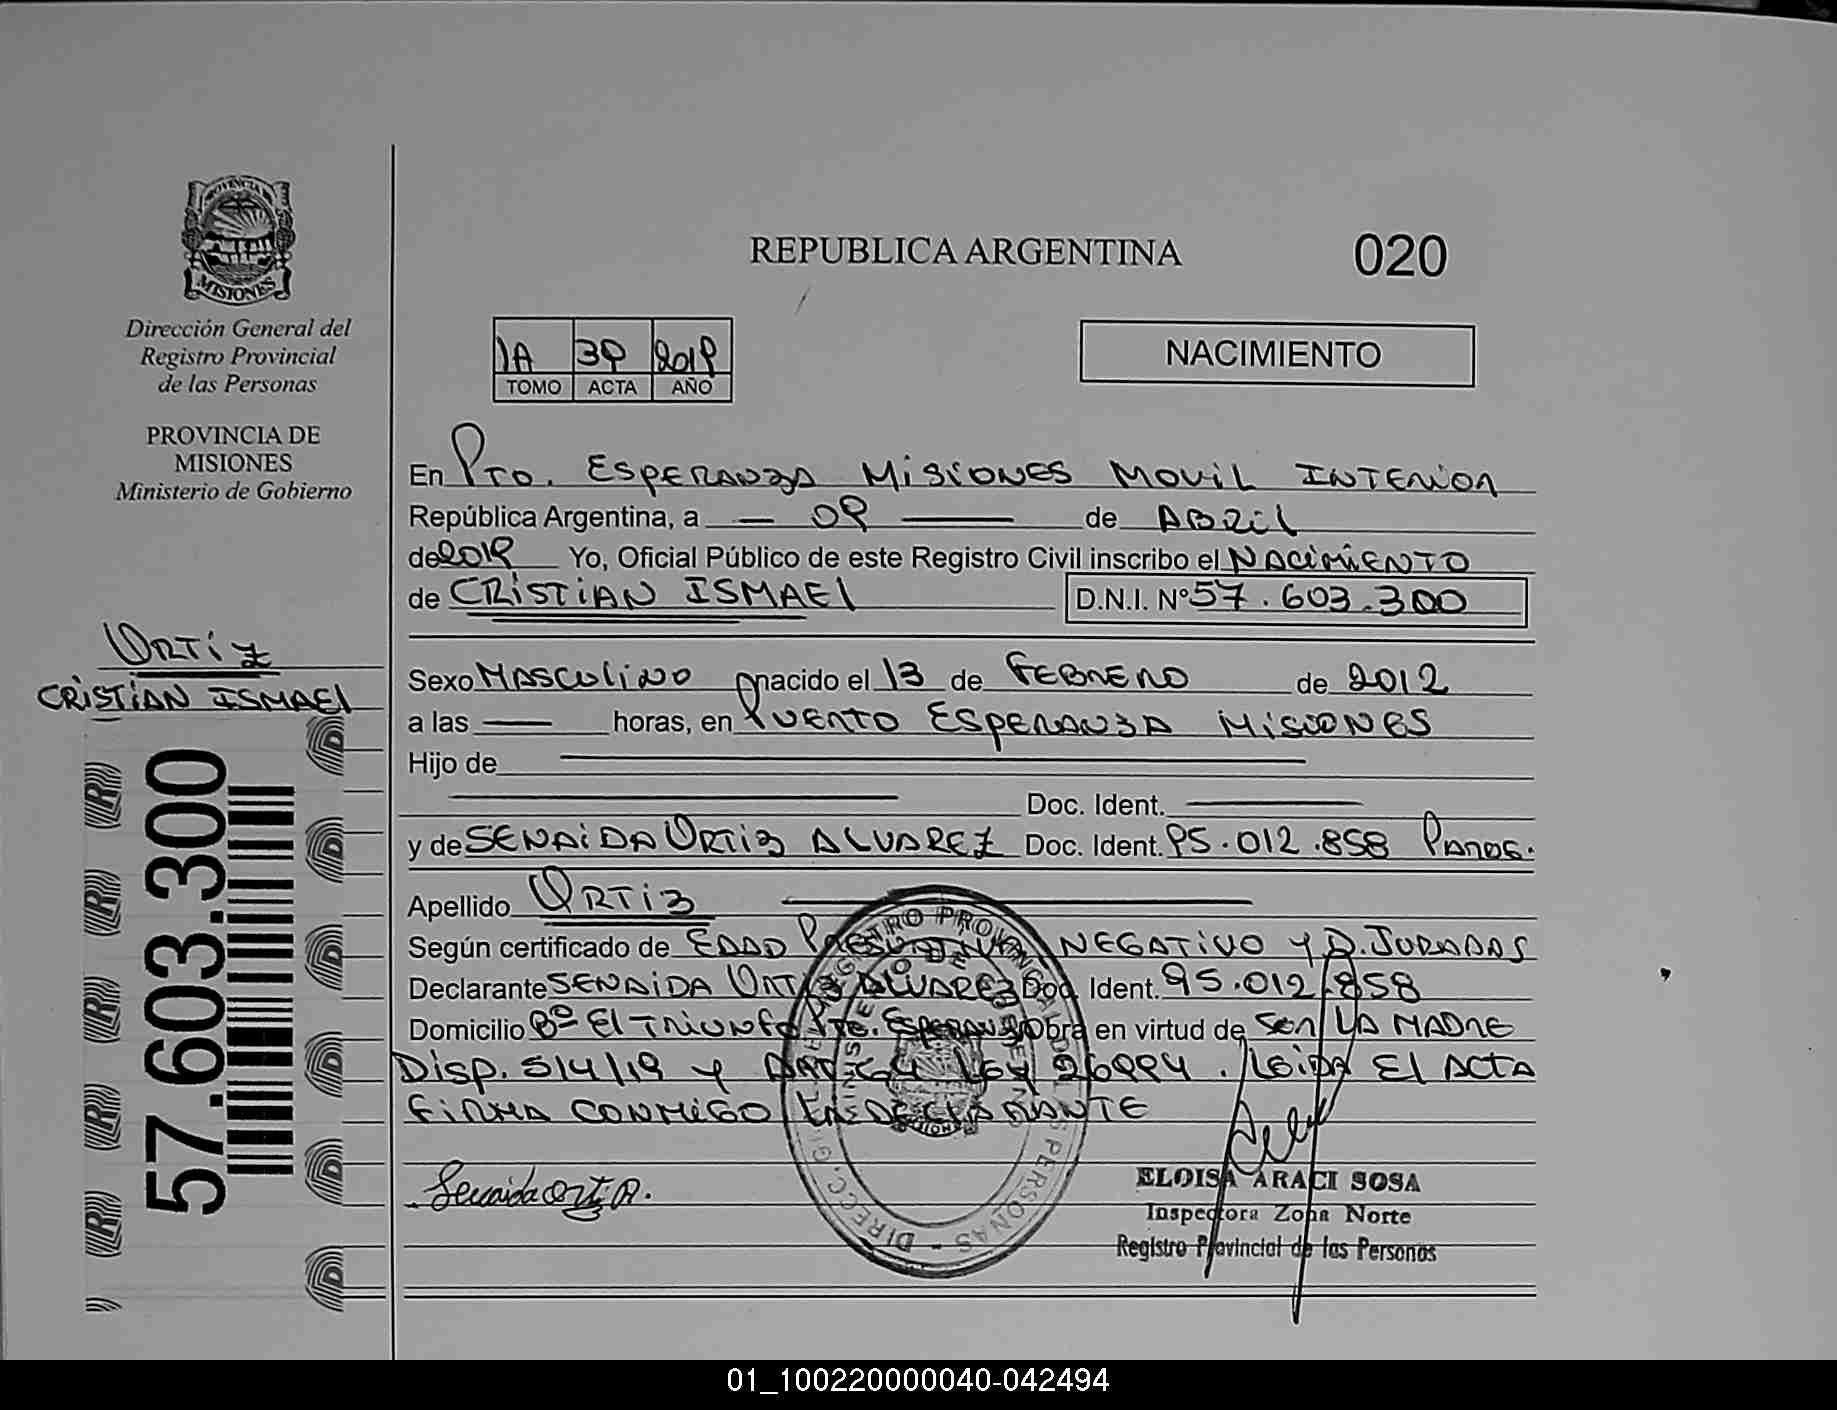 PROVINCIA DE
MISIONES
Dirección General del
Registro Provincial
de las Personas
PROVINCIA DE
MISIONES
Ministerio de Gobierno
ORTIZ
CRISTIAN ISMAEL
57.603.300
REPUBLICA ARGENTINA
020
1A 39 2019
TOMO ACTA AÑO
NACIMIENTO
En PTO. ESPERANZA MISIONES MOVIL INTERIOR
República Argentina, a — 09 — de ABRIL
de 2019 Yo, Oficial Público de este Registro Civil inscribo el NACIMIENTO
de CRISTIAN ISMAEL D.N.I. Nº 57.603.300
Sexo MASCULINO nacido el 13 de FEBRERO de 2012
a las — horas, en PUERTO ESPERANZA MISIONES
Hijo de —
— Doc. Ident. —
y de SENAIDA ORTIZ ALVAREZ Doc. Ident. 95.012.858 PARAG.
Apellido ORTIZ —
Según certificado de EDAD PRESUNTIVA NEGATIVO Y D. JURADAS
Declarante SENAIDA ORTIZ ALVAREZ Doc. Ident. 95.012.858
Domicilio Bº El TRIUNFO PTO. ESPERANZA obra en virtud de SER LA MADRE
DISP. 514/19 Y ART. 64 LEY 26994. LEIDA El ACTA
FIRMA CONMIGO LA DECLARANTE
Senaida Ortiz A.
ELOISA ARACI SOSA
Inspectora Zona Norte
Registro Provincial de las Personas
01_100220000040-042494